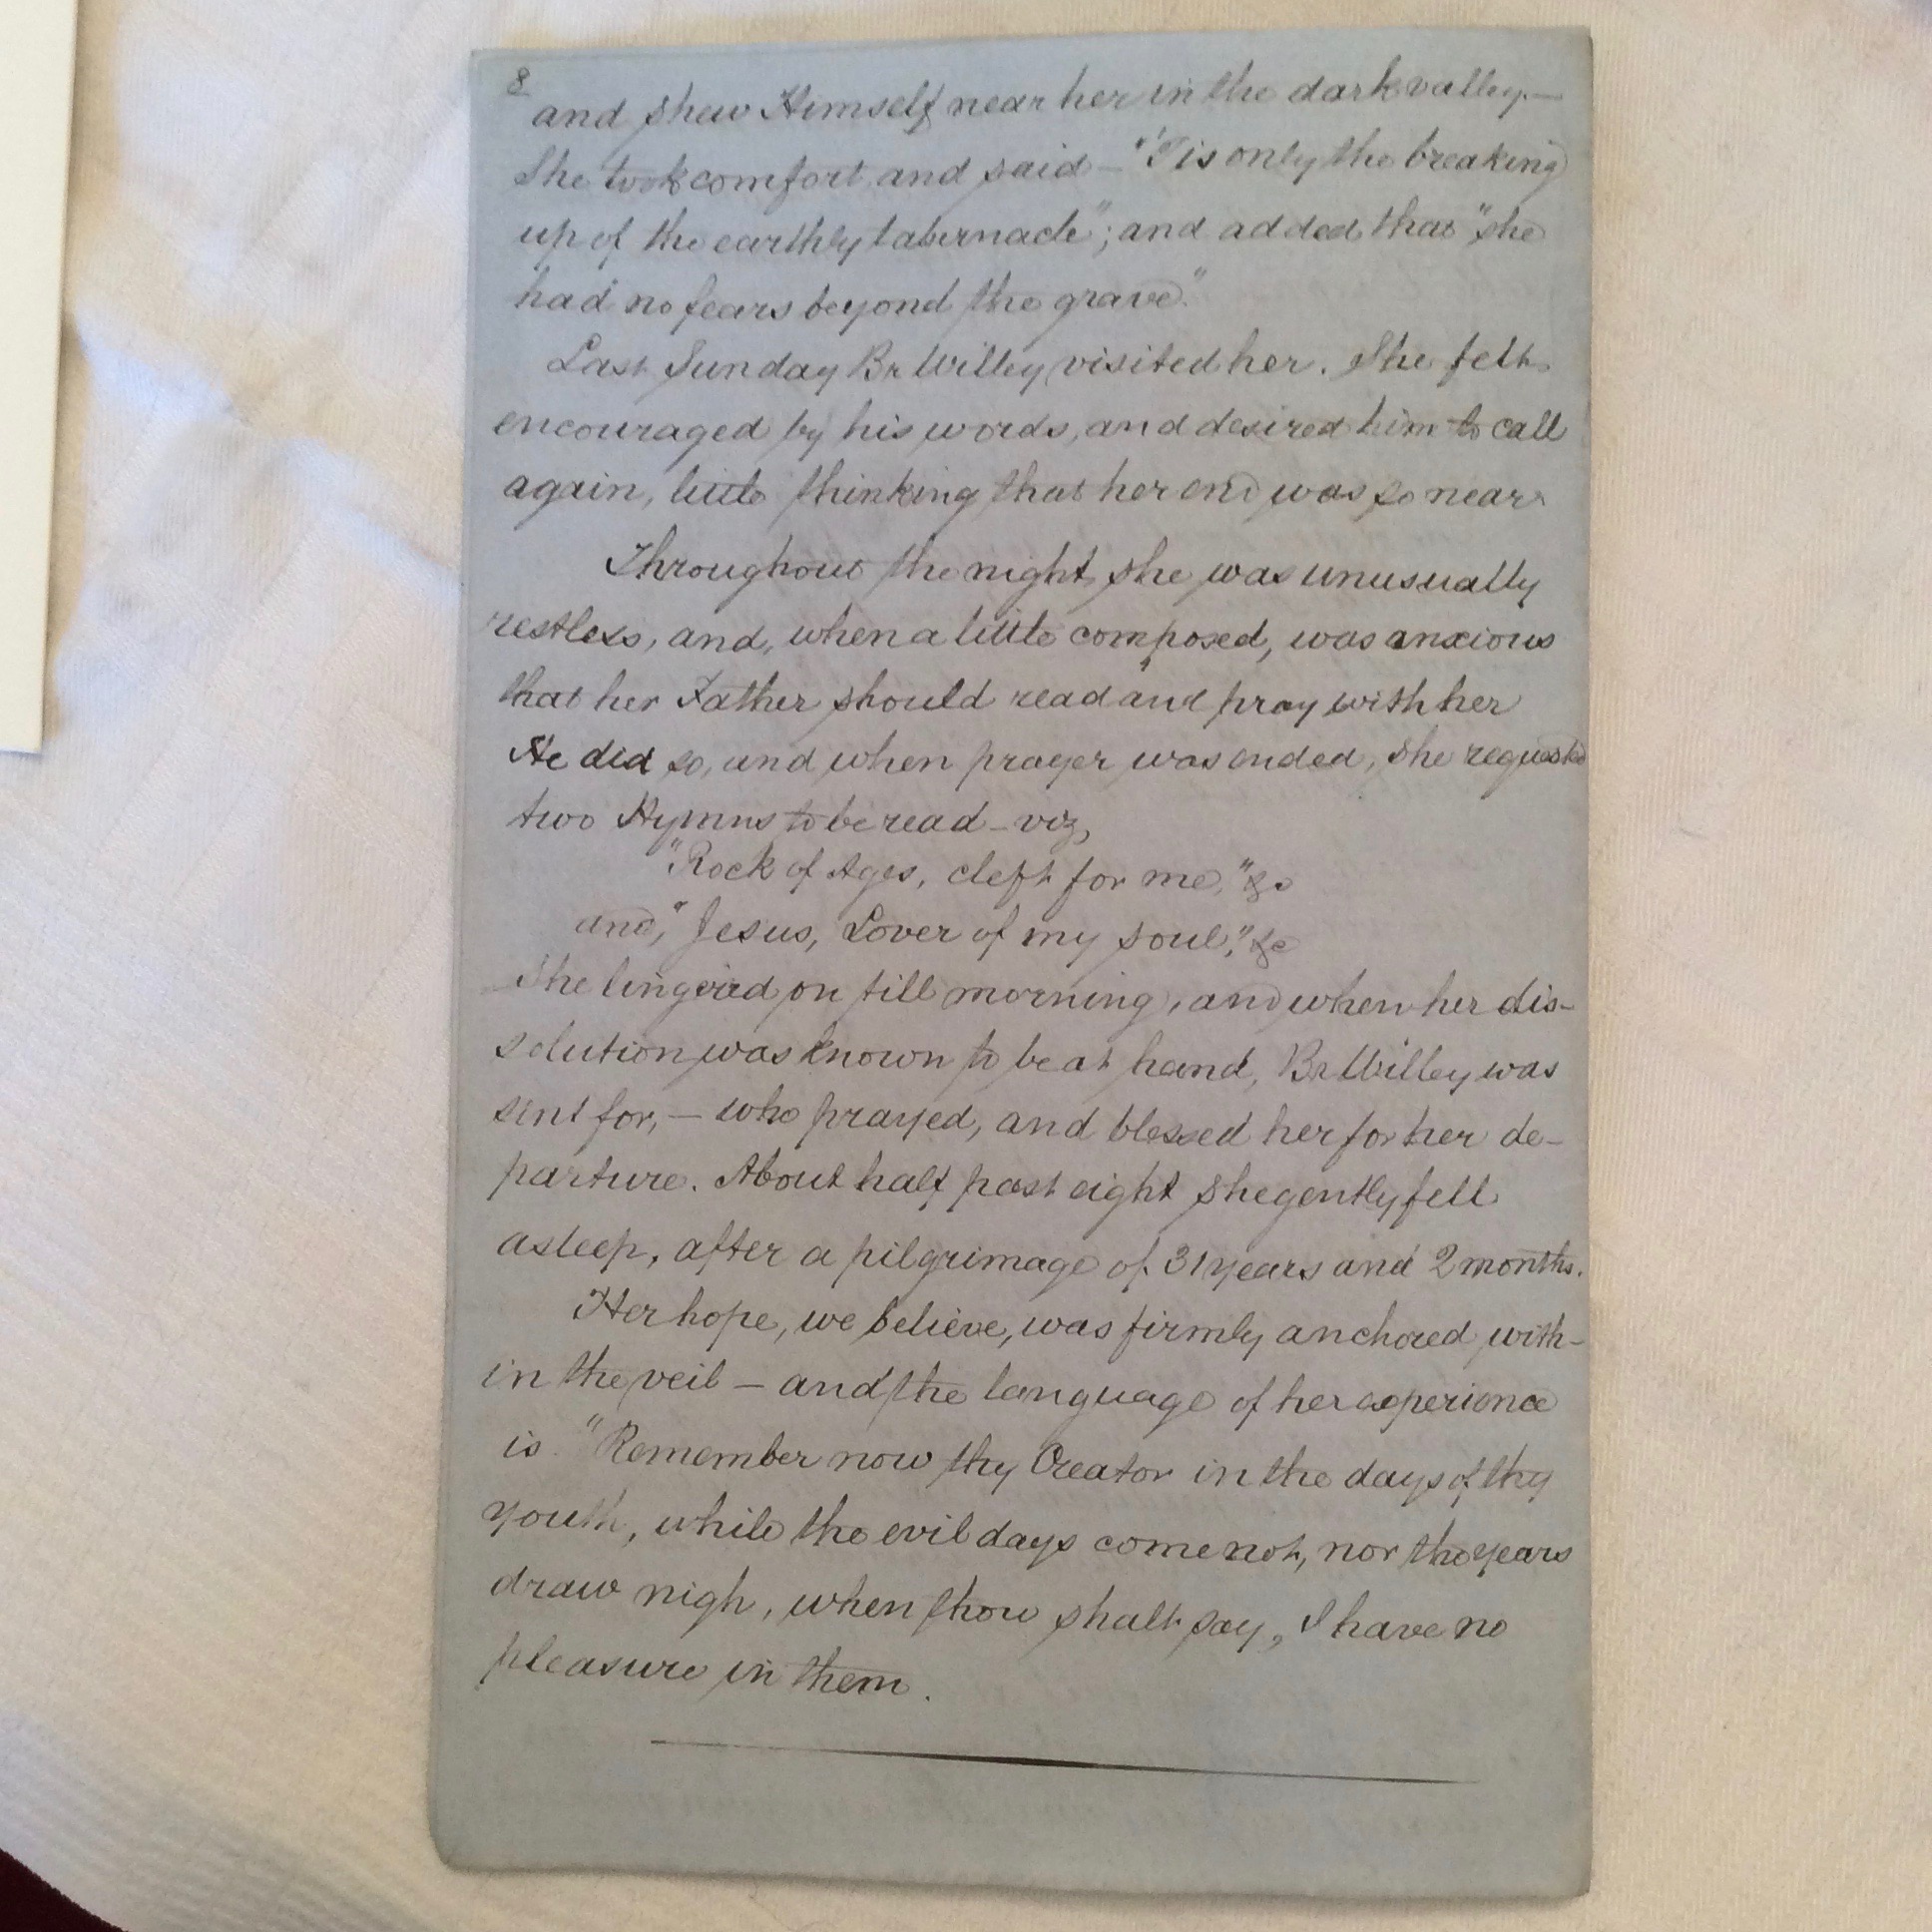 8
and shew Himself near her in the dark valley.—
She took comfort and said — "'Tis only the breaking
up of the earthly tabernacle"; and added that "she
had no fears beyond the grave."
Last Sunday Br Willey visited her. She felt
encouraged by his words, and desired him to call
again, little thinking that her end was so near.
Throughout the night she was unusually
restless, and, when a little composed, was anxious
that her Father should read and pray with her
He did so, and when prayer was ended, she requested
two Hymns to be read – viz,
"Rock of Ages, cleft for me," &c
and, "Jesus, Lover of my soul," &c
She lingered on till morning, and when her dis-
solution was known to be at hand, Br Willey was
sent for, — who prayed, and blessed her for her de-
parture. About half past eight she gently fell
asleep, after a pilgrimage of 31 years and 2 months.
Her hope, we believe, was firmly anchored with-
in the veil — and the language of her experience
is "Remember now thy Creator in the days of thy
youth, while the evil days come not, nor the years
draw nigh, when thou shalt say, I have no
pleasure in them.